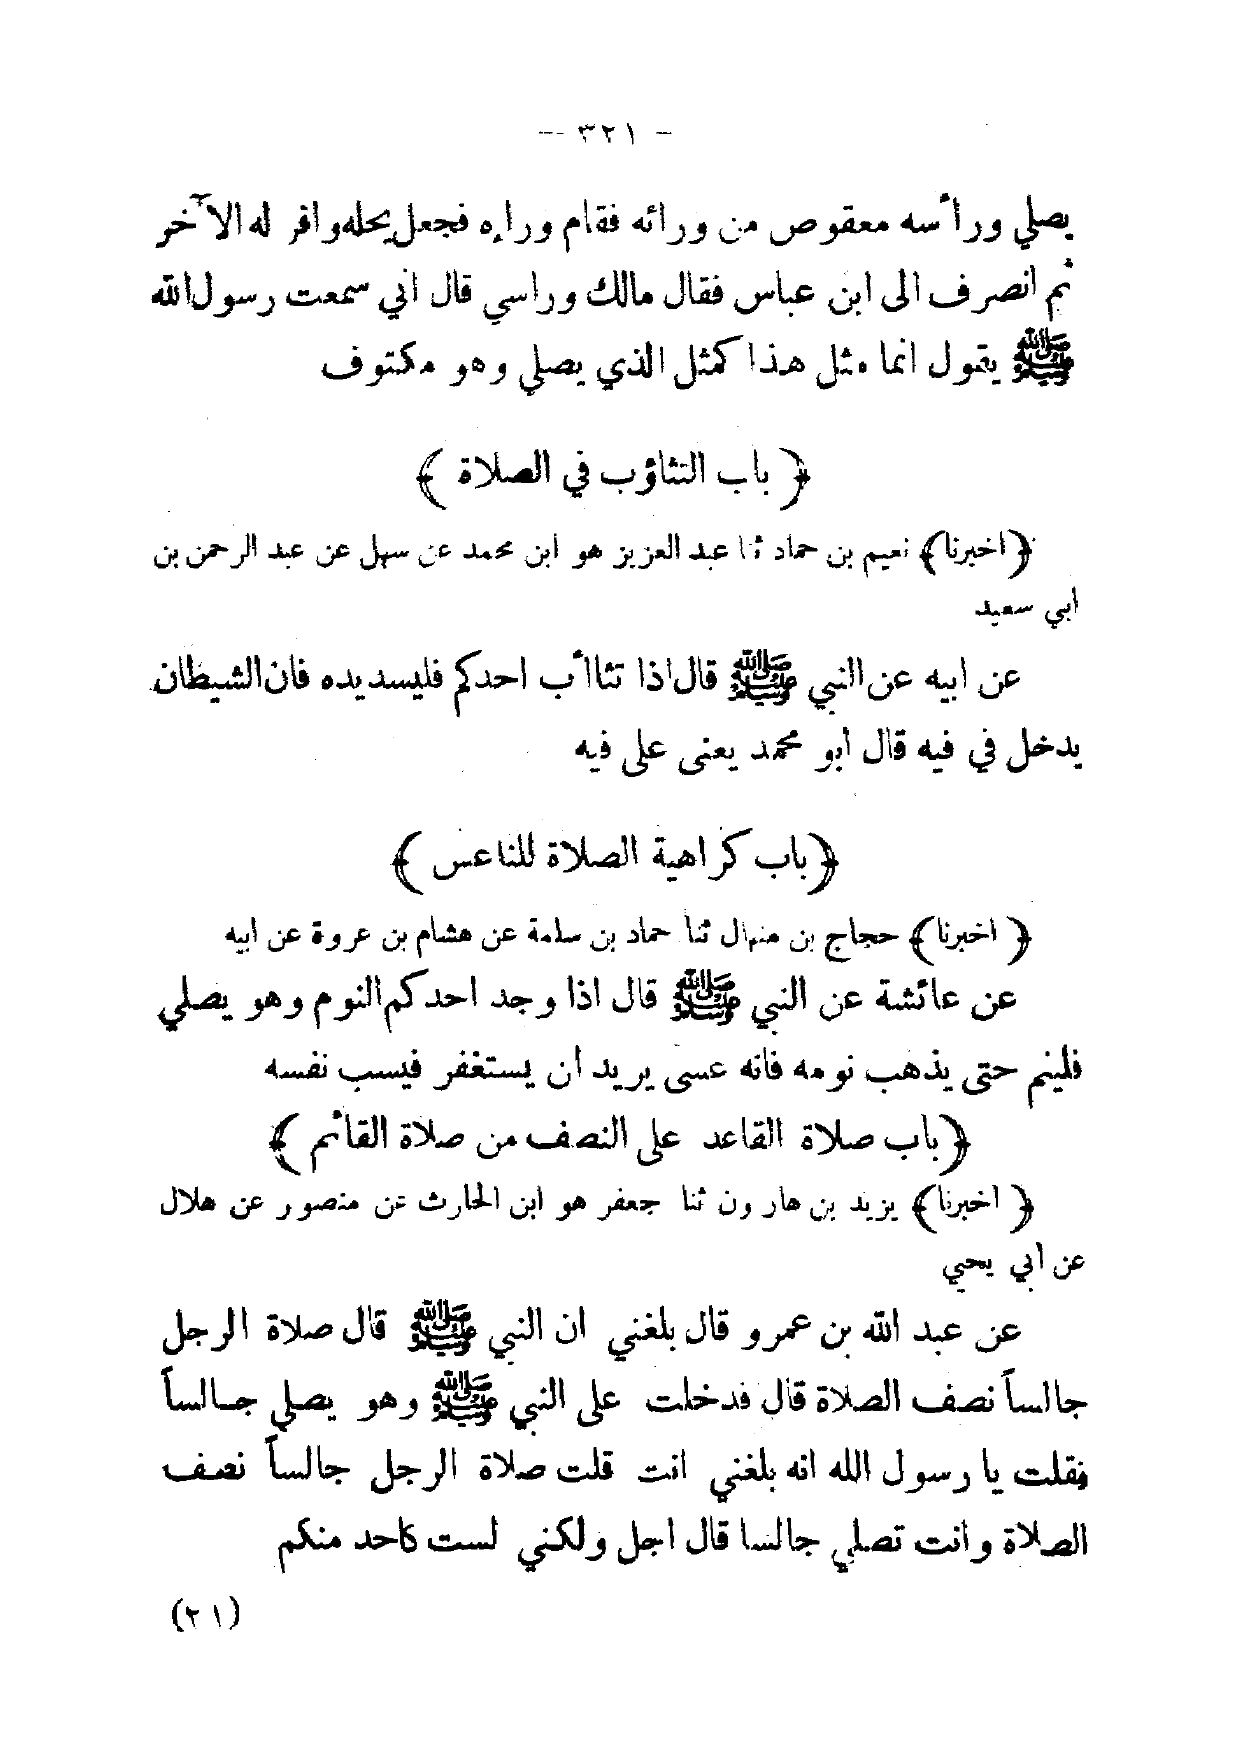 - ٣٢١ --
يصلي ورأسه معقوص من ورائه فقام وراءه فجعل يحله واقر له الآخر
ثم انصرف الى ابن عباس فقال مالك وراسي قال اني سمعت رسول الله
ﷺ يقول انما مثل هذا كمثل الذي يصلي وهو مكتوف
﴿ باب التثاؤب في الصلاة ﴾
﴿اخبرنا﴾ نعيم بن حماد ثنا عبد العزيز هو ابن محمد عن سهل عن عبد الرحمن بن
أبي سعيد
عن ابيه عن النبي ﷺ قال اذا تثاأب احدكم فليسد يده فان الشيطان
يدخل في فيه قال أبو محمد يعنى على فيه
﴿باب كراهية الصلاة للناعس ﴾
﴿ اخبرنا﴾ حجاج بن منهال ثنا حماد بن سلمة عن هشام بن عروة عن ابيه
عن عائشة عن النبي ﷺ قال اذا وجد احدكم النوم وهو يصلي
فلينم حتى يذهب نومه فانه عسى يريد ان يستغفر فيسب نفسه
﴿باب صلاة القاعد على النصف من صلاة القائم ﴾
﴿ اخبرنا﴾ يزيد بن هارون ثنا جعفر هو ابن الحارث عن منصور عن هلال
عن أبي يحيي
عن عبد الله بن عمرو قال بلغني ان النبي ﷺ قال صلاة الرجل
جالساً نصف الصلاة قال فدخلت على النبي ﷺ وهو يصلي جالساً
فقلت يا رسول الله انه بلغني انت قلت صلاة الرجل جالساً نصف
الصلاة وانت تصلي جالسا قال اجل ولكني لست كاحد منكم
(٢١)